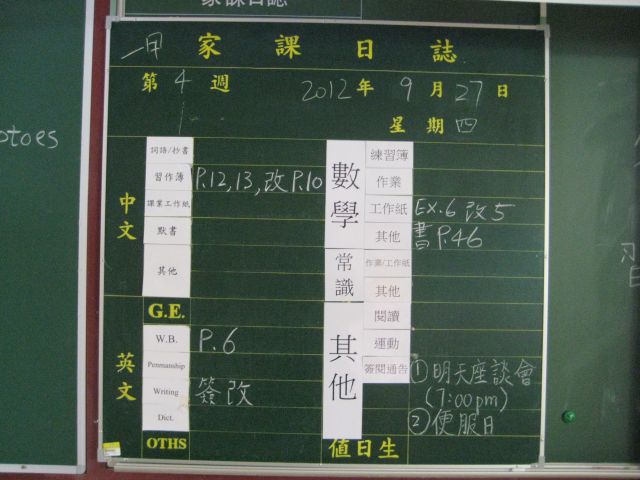 家課日誌
一甲 家課日誌
第 4 週 2012年 9月 27日
星期四
otoes
中文
詞語/抄書
習作簿 P.12,13,改P.10
課業工作紙
默書
其他
G.E.
英文
W.B. P.6
Penmanship
Writing 簽改
Dict.
OTHS
數學
練習簿
作業
工作紙 EX.6 改5
其他 書P.46
常識
作業/工作紙
其他
其他
閱讀
運動
簽閱通告 ①明天座談會
(7:00pm)
②便服日
值日生